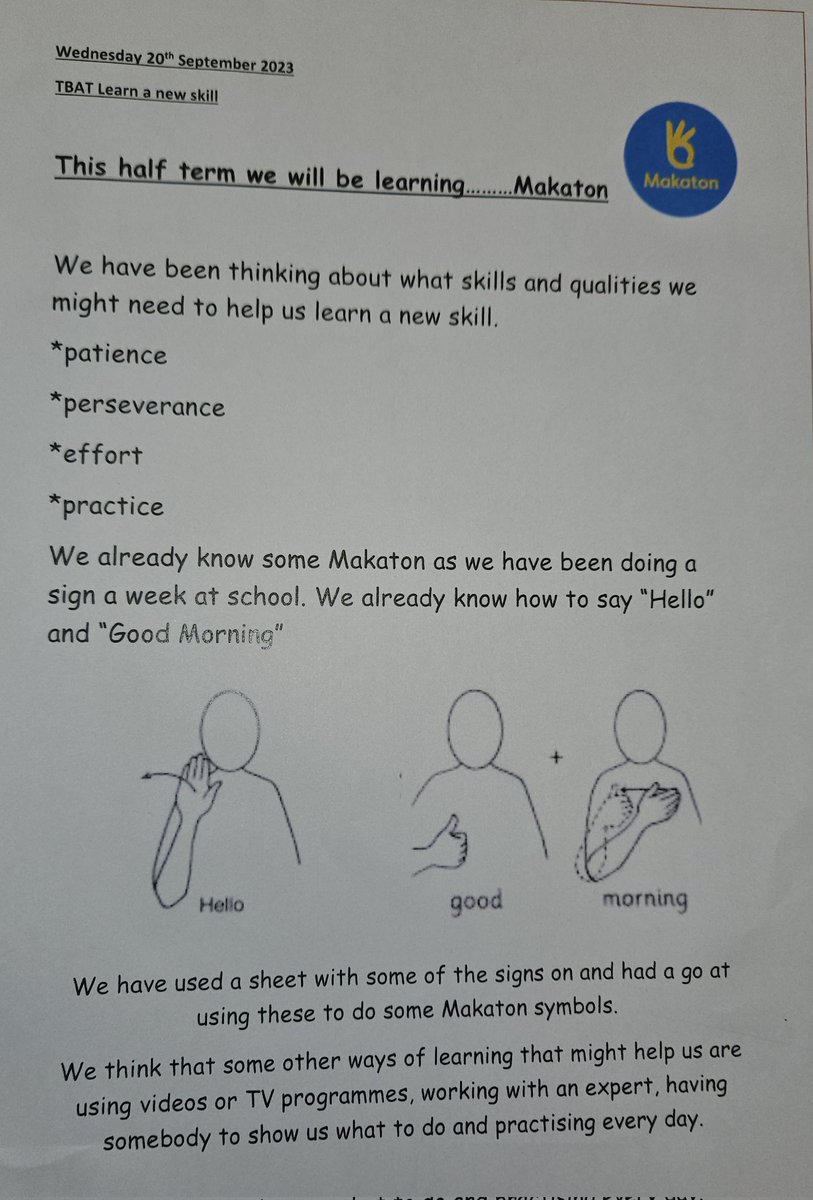 Wednesday 20th September 2023
TBAT Learn a new skill
This half term we will be learning.........Makaton
Makaton
We have been thinking about what skills and qualities we
might need to help us learn a new skill.
*patience
*perseverance
*effort
*practice
We already know some Makaton as we have been doing a
sign a week at school. We already know how to say "Hello"
and "Good Morning"
+
Hello
good
morning
We have used a sheet with some of the signs on and had a go at
using these to do some Makaton symbols.
We think that some other ways of learning that might help us are
using videos or TV programmes, working with an expert, having
somebody to show us what to do and practising every day.